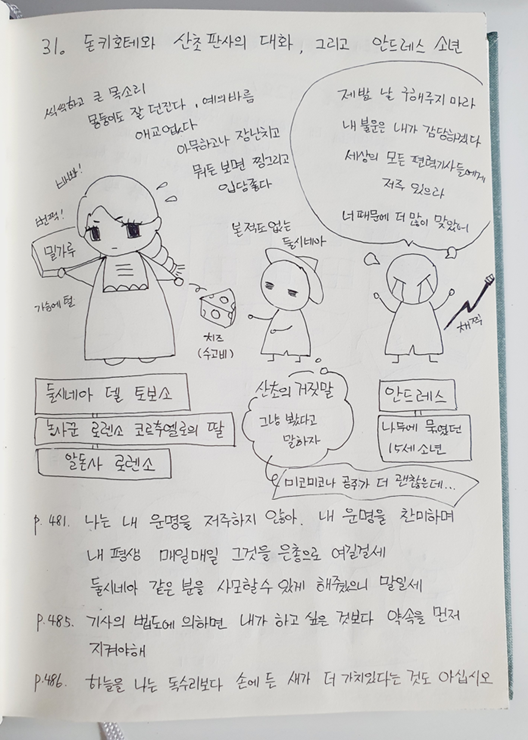 31. 돈키호테와 산초 판사의 대화, 그리고 안드레스 소년
씩씩하고 큰 목소리
몽둥이도 잘 던진다, 예의바름
애교 없다
아무하고나 장난치고
뭐든 보면 찡그리고
입담좋다
바빠!
번쩍!
밀가루
가슴에 털
치즈
(수고비)
본적도 없는
둘시네아
제발 날 구해주지 마라
내 불운은 내가 감당하겠다
세상의 모든 편력기사들에게
저주 있으라
너 때문에 더 많이 맞았어
채찍
둘시네아 델 토보소
농사꾼 로렌소 코르추엘로의 딸
알돈사 로렌소
산초의 거짓말
그냥 봤다고
말하자
안드레스
나무에 묶였던
15세 소년
미코미코나 공주가 더 괜찮은데...
p.481. 나는 내 운명을 저주하지 않아. 내 운명을 찬미하며
내 평생 매일매일 그것을 은총으로 여길걸세
둘시네아 같은 분을 사모할수 있게 해줬으니 말일세
p.485. 기사의 법도에 의하면 내가 하고 싶은 것보다 약속을 먼저
지켜야해
p.486. 하늘을 나는 독수리보다 손에 든 새가 더 가치있다는 것도 아십시오